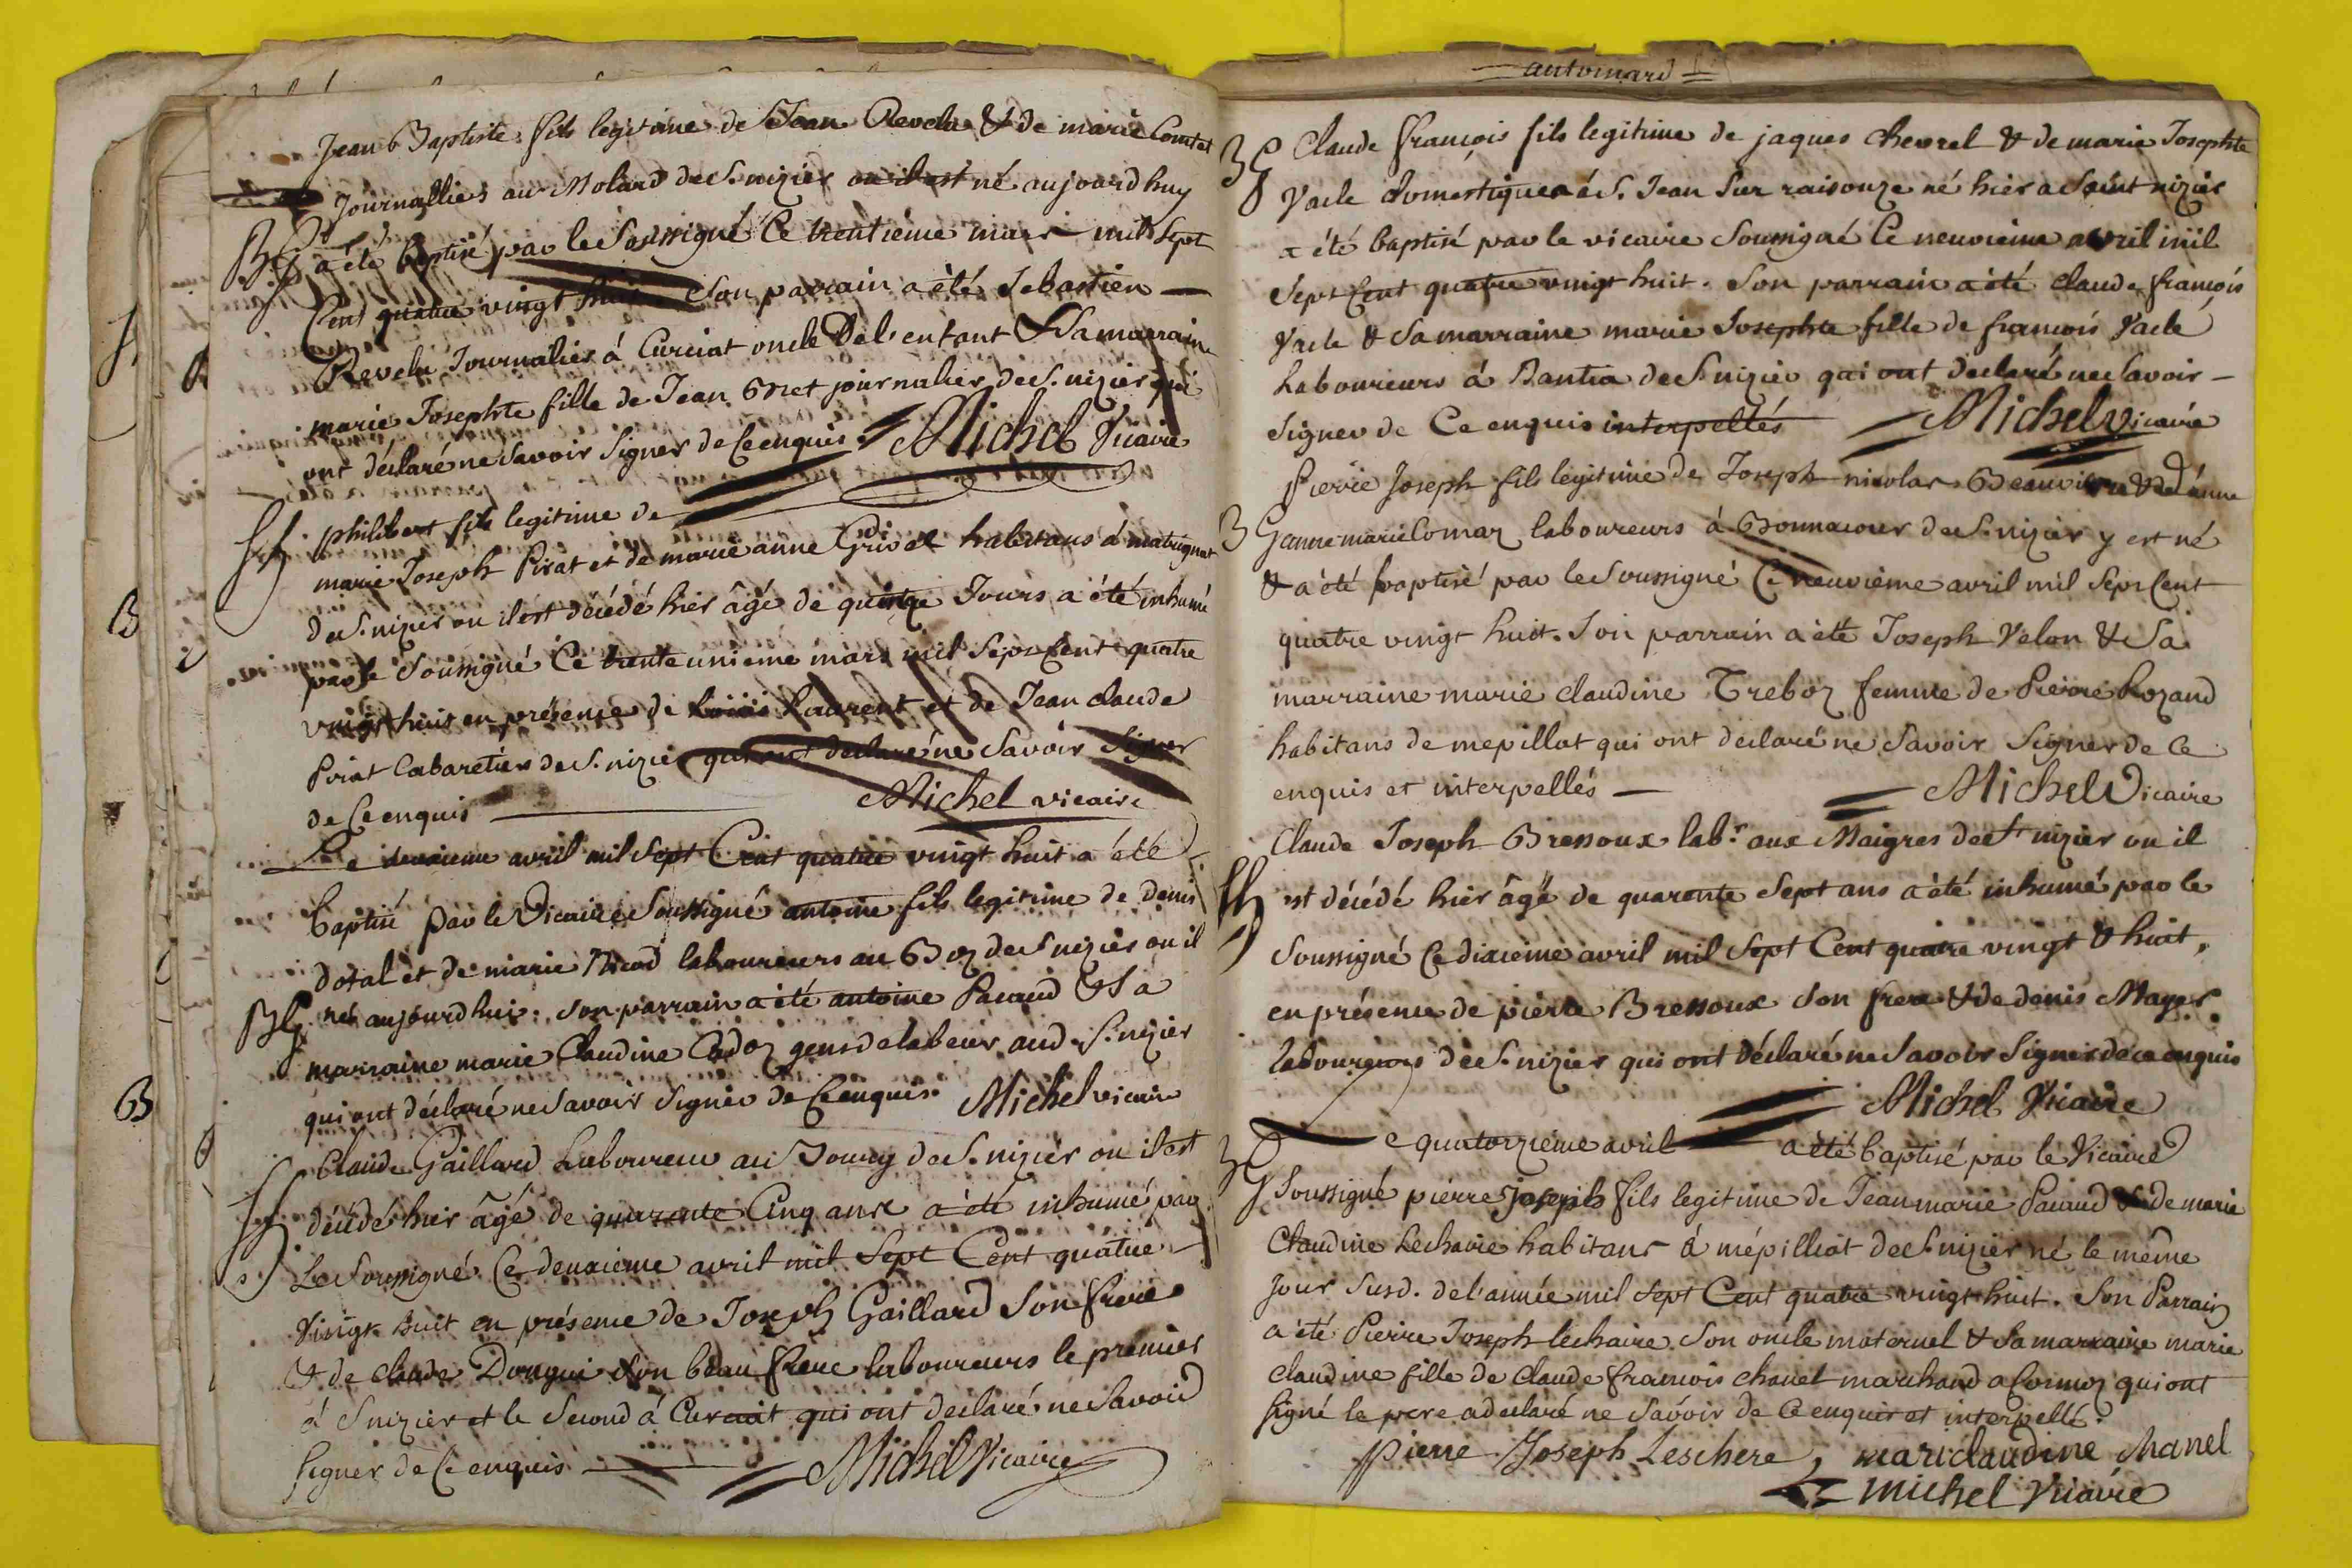 Jean Baptiste fils legitime de Jean Revelu & de marie Comtet
Journalliers au Molard de S. nizier ou il est né aujourdhuy
BG a été baptisé par le Soussigné Ce trentieme mars mil sept
Cent quatre vingt huit Son parrain a èté Sebastien
Revelu Journalier á Curciat oncle De l'enfant & Sa marraine
marie Josephte fille de Jean journalier de S. nizier qui
ont déclaré ne Savoir Signer de Ce enquis. Michel Vicaire
philibert fils legitime de
marie Joseph Pirat et de marie anne habitans á matignat
de S. nizier ou il est décédé hier âgé de quinze Jours a été inhumé
par le Soussigné Ce trente unieme mars mil Sept Cent quatre
vingt huit en présence de Loüis Laurent et de Jean claude
Pirat Cabaretier de S. nizier qui ont declaré ne Savoir Signer
de Ce enquis Michel vicaire
B
Le deuxieme avril mil Sept Cent quatre vingt huit a été
baptisé par le Vicaire Soussigné antoine fils legitime de denis
dotal et de marie Nicod laboureurs au Boz de S nizier ou il
BG né aujourdhui. Son parrain a été antoine Pauaud & Sa
marraine marie Claudine gens de labeur aud. S. nizier
qui ont déclaré ne Savoir Signer de Ce enquis. Michel vicaire
B
Claude Gaillard Laboureur au de S. nizier ou il est
décédé hier âgé de quarante Cinq ans a été inhumé par
Le Soussigné Ce deuxieme avril mil Sept Cent quatre
Vingt huit en présence de Joseph Gaillard Son frere
& de claude Dongui Son beau frere laboureurs le premier
á S nizier et le Second á Curciat qui ont declaré ne Savoir
Signer de Ce enquis Michel Vicaire
antomard
BG Claude françois fils legitime de jaques chevrel & de marie Josephte
Vacle domestiques á S. Jean Sur raisouze né hier a Saint nizier
a été baptisé par le vicaire Soussigné Ce neuvieme avril mil
Sept Cent quatre vingt huit. Son parrain a été claude françois
Vacle & Sa marraine marie Josephte fille de françois Vacle
Laboureurs á Bantia de S. nizier qui ont declaré ne Savoir
Signer de Ce enquis interpellés Michel Vicaire
Pierre Joseph fils legitime de Joseph nicolas & d'anne
BG anne marie Comaz laboureurs á de S. nizier y est né
& a été baptisé par le Soussigné Ce neuvième avril mil Sept Cent
quatre vingt huit. Son parrain a été Joseph Velon & Sa
marraine marie claudine Treboz femme de Pierre Rozand
habitans de mepillat qui ont declaré ne Savoir Signer de Ce
enquis et interpellés Michel Vicaire
Claude Joseph Bressoux labr. aux Maigres de St nizier ou il
est décédé hier âgé de quarante Sept ans a été inhumé par le
Soussigné Ce dixieme avril mil Sept Cent quatre vingt & huit,
en présence de pierre Bressoux Son frere & de denis Mayer
laboureurs de S. nizier qui ont déclaré ne Savoir Signer de ce enquis
Michel Vicaire
Le quatorzieme avril a été baptisé par le Vicaire
BG Soussigné pierre joseph fils legitime de Jean marie Pauaud & de marie
Claudine Lechaire habitans á mépilliat de S. nizier né le même
Jour Susd. de l'année mil Sept Cent quatre vingt huit. Son Parrain
a été Pierre Joseph lechaire Son oncle maternel & Sa marraine marie
claudine fille de claude françois chanel marchand a Cormoz qui ont
signé le pere a declaré ne Savoir de Ce enquis et interpellé.
pierre Joseph Leschere, mari claudine Chanel
michel Vicaire